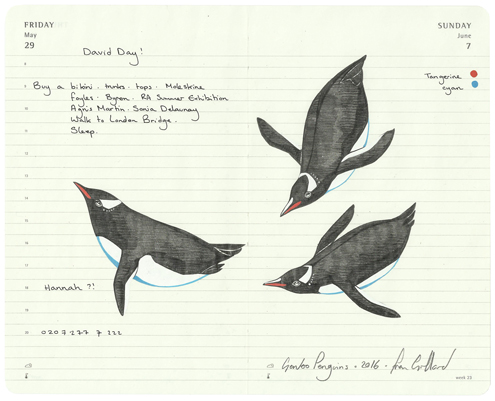 FRIDAY
May
29
David Day!
Buy a bikini · trunks · tops · Moleskine
Foyles · Byron · RA Summer Exhibition
Agnes Martin · Sonia Delaunay
Walk to London Bridge.
Sleep.
Hannah ?!
0207 277 7 222
SUNDAY
June
7
Tangerine
cyan
Gentoo Penguins · 2016 ·
week 23